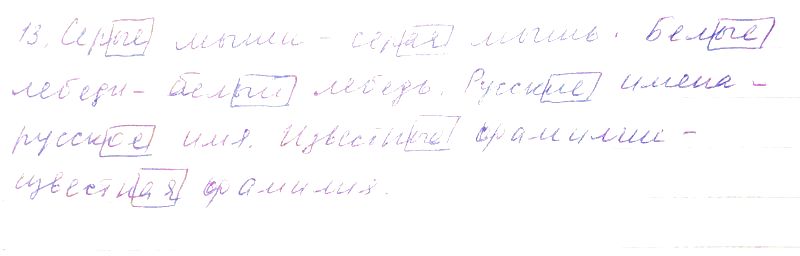 13. Серые мыши - серая мышь. Белые
лебеди - белый лебедь. Русские имена -
русское имя. Известные фамилии -
известная фамилия.